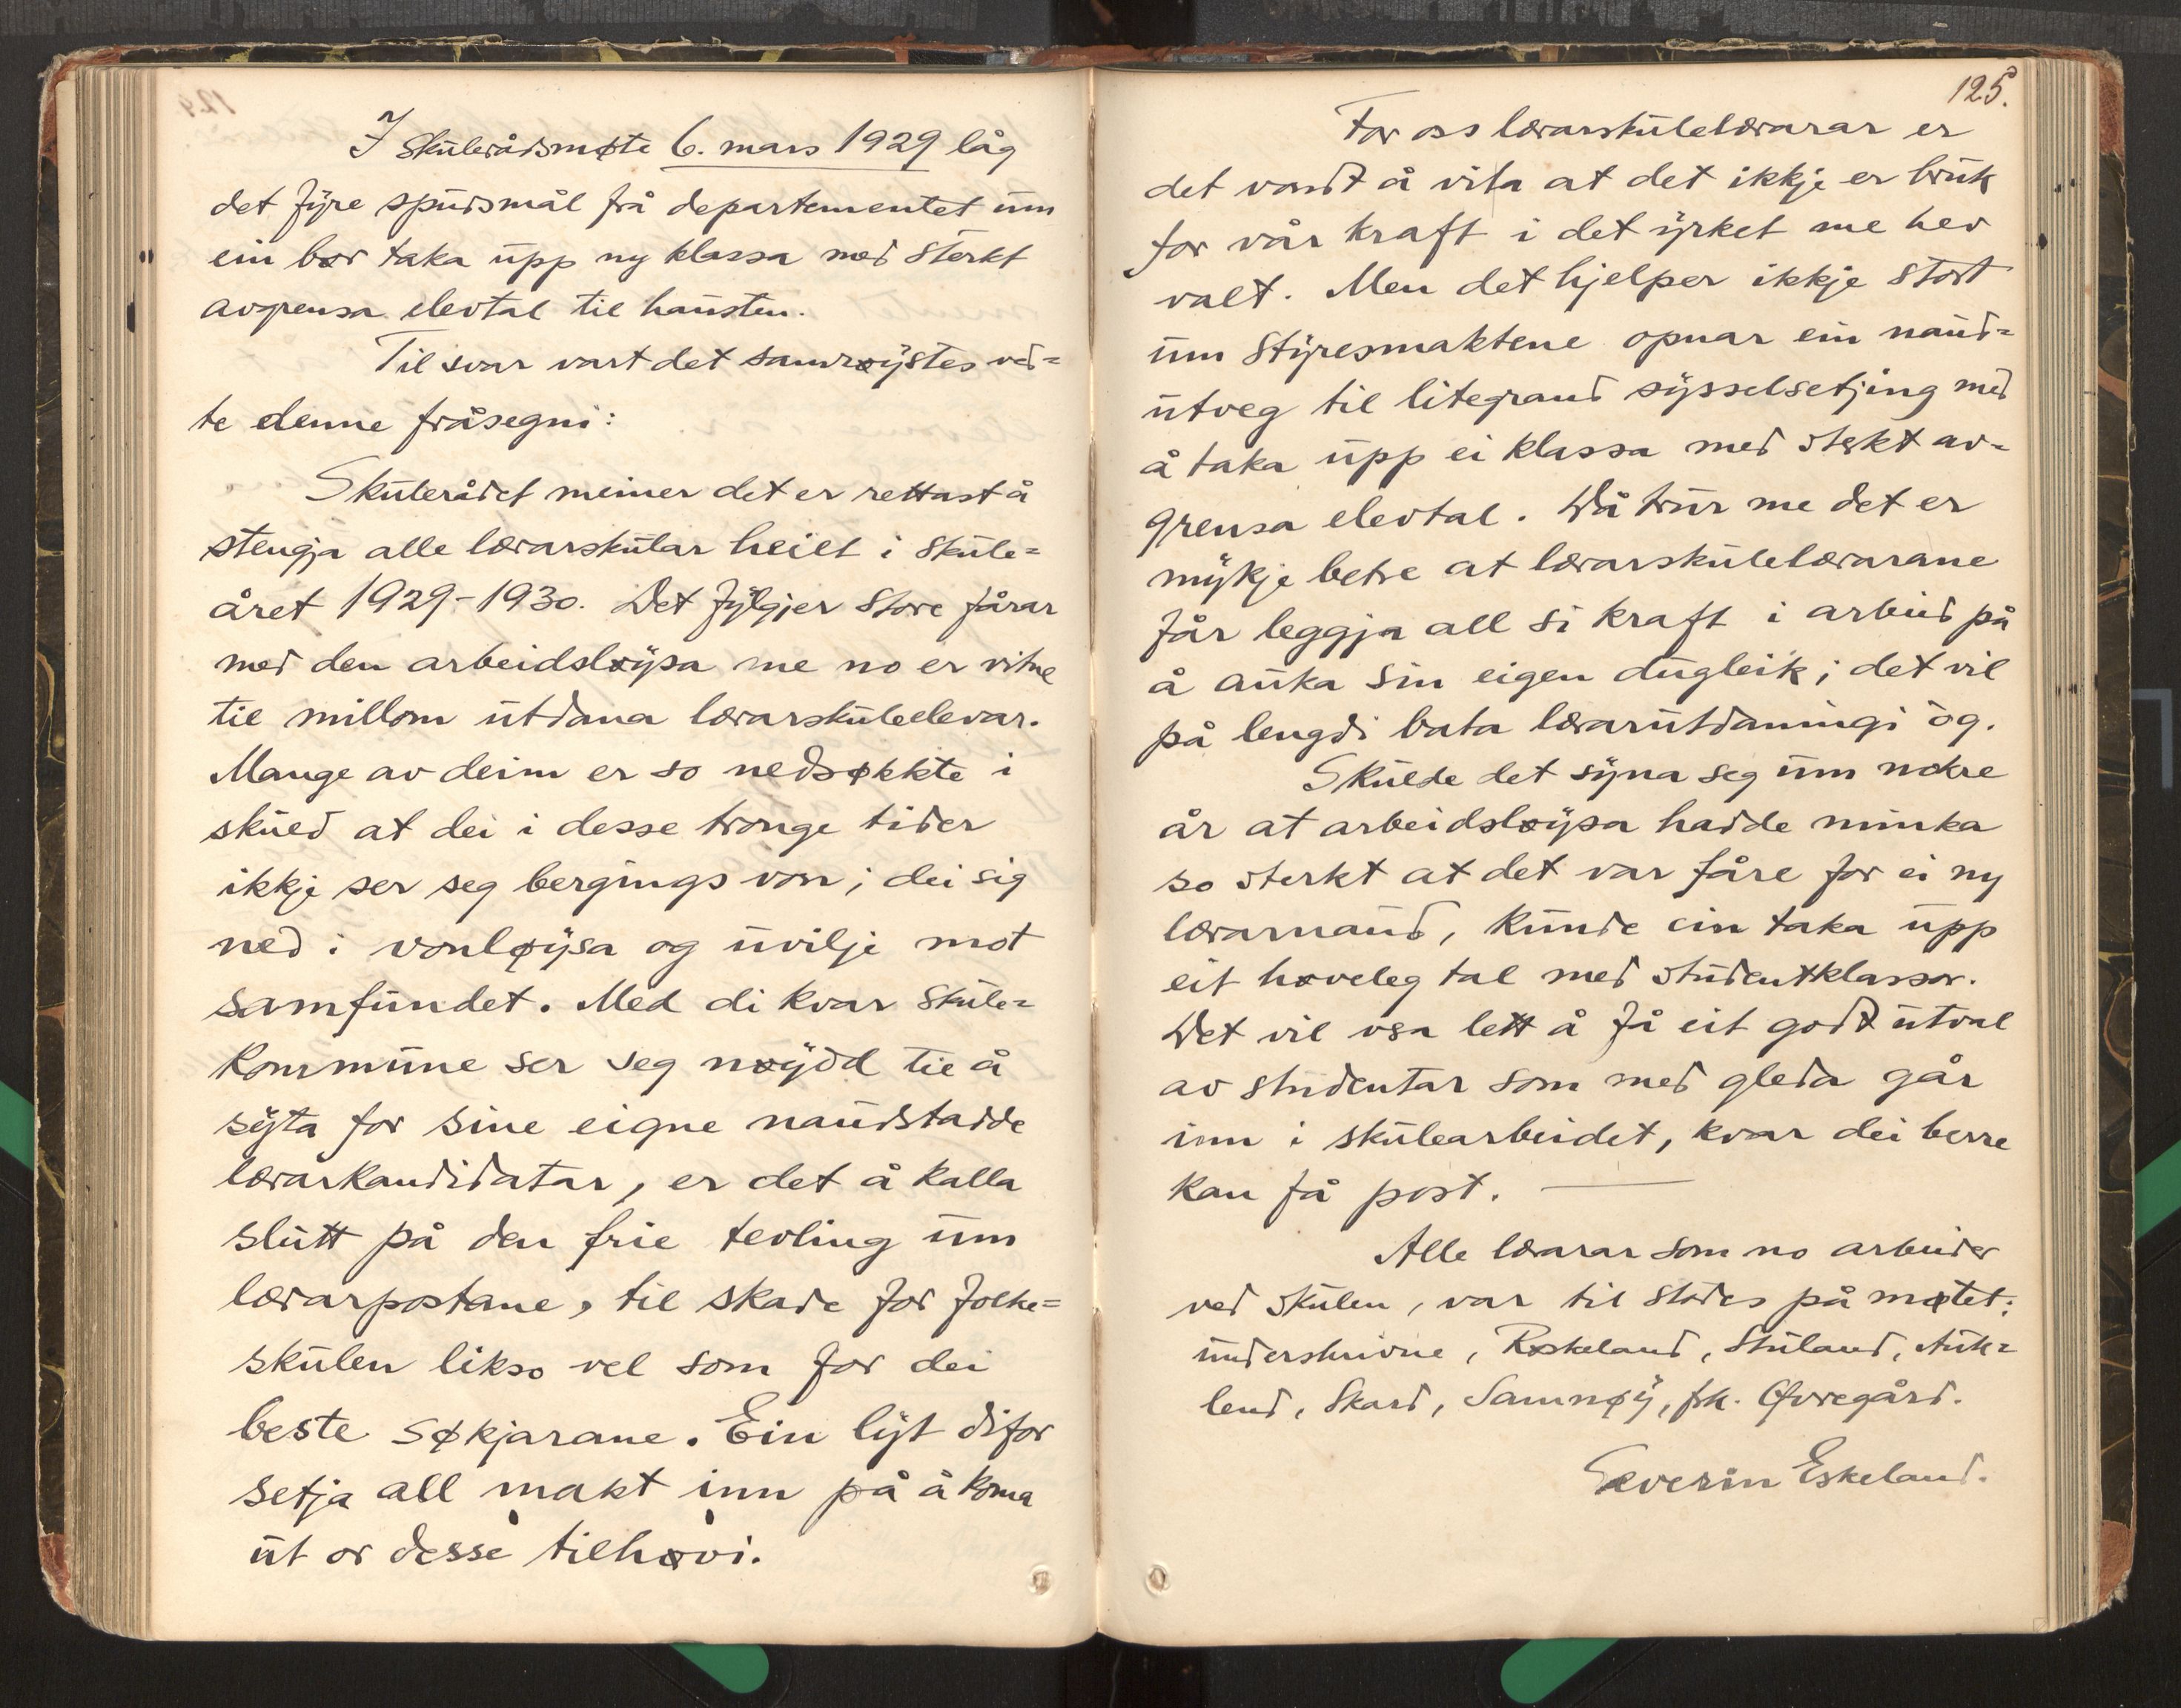 I skulerådsmøte 6. mars 1929 låg
det fyre spursmål frå departementet um
ein bør taka upp ny klassa med sterkt
avgrensa elevtal til hausten.
Til svar vart det samrøystes ved=
te denne fråsegni:
Skulerådet meiner det er rettast å
stengja alle lærarskular heilt i skule=
året 1929-1930. Det fylgjer store fårar
med den arbeidsløysa me no er vitne
til millom utdana lærarskuleelevar.
Mange av deim er so nedsøkkte i
skuld at dei i desse tronge tider
ikkje ser seg bergings von; dei sig
ned i vonløysa og uvilje mot
samfundet. Med di kvar skule=
kommune ser seg nøydd til å
syta for sine eigne naudstadde
lærarkandidatar, er det å kalla
slutt på den frie tevling um
lærarpostane, til skade for folke=
skulen likso vel som for dei
beste søkjarane. Ein lyt difor
setja all makt inn på å koma
ut or desse tilhøvi.
125.
For oss lærarskulelærarar er
det vondt å vita at det ikkje er bruk
for vår kraft i det yrket me hev
valt. Men det hjelper ikkje stort
um styresmaktene opnar ein naud=
utveg til litegrand sysselsetjing med
å taka upp ei klassa med sterkt av=
grensa elevtal. Då trur me det er
mykje betre at lærarskulelærarane
får leggja all si kraft i arbeid på
å auka sin eigen dugleik; det vil
på lengdi bata lærarutdaningi òg.
Skulde det syna seg um nokre
år at arbeidsløysa hadde minka
so sterkt at det var fåre for ei ny
lærarnaud, kunde ein taka upp
eit høveleg tal med studentklassor.
Det vil vera lett å få eit godt utval
av studentar som med gleda går
inn i skulearbeidet, kvar dei berre
kan få post. —
Alle lærarar som no arbeider
ved skulen, var til stades på møtet:
underskrivne, Røskeland, Støland, Auk=
lend, Skard, Samnøy, frk. Øvregård.
Severin Eskeland.